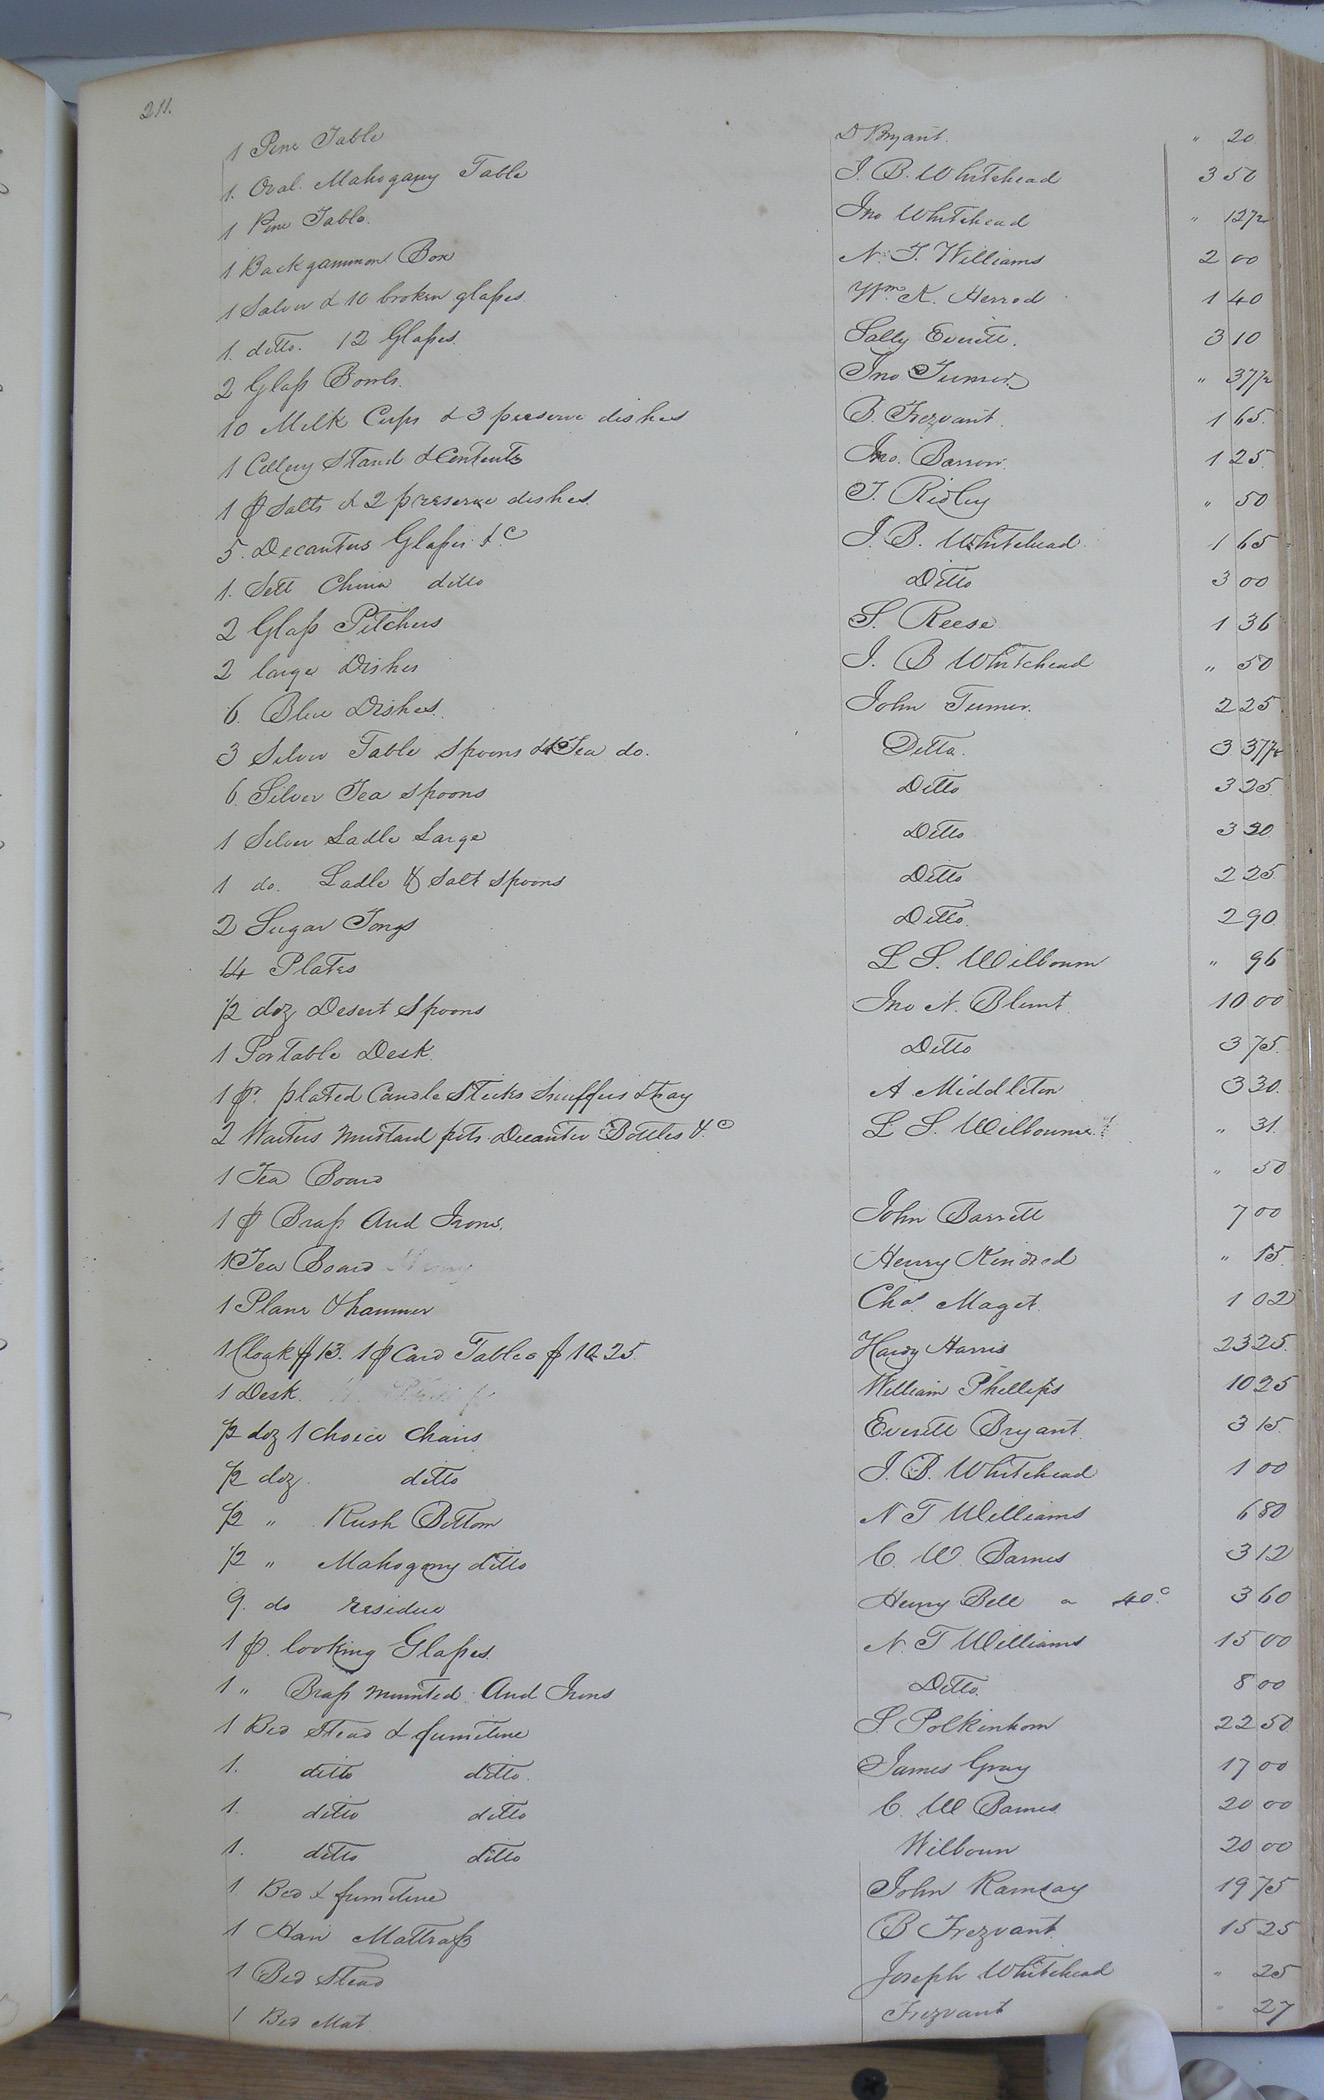 211.
1 Pine Table D Bryant. " 20
1. Oval. Mahogany Table J. B. Whitehead 3 50
1 Pine Table. Jno Whitehead " 12½
1 Backgammon Box N. T. Williams 2 00
1 Salver & 10 broken glasses Wm. K. Herrod 1 40
1. ditto. 12 Glasses. Sally Everitt. 3 10
2 Glass Bowls. Jno Turner " 37½
10 Milk Cups & 3 preserve dishes B. Trezvant. 1 65.
1 Cellery Stand & Contents Jno. Barrow. 1 25
1 p Salts & 2 preserve dishes. T. Ridley " 50
5. Decanters Glasses &c J. B. Whitehead. 1 65
1. Sett China ditto Ditto 3 00
2 Glass Pitchers S. Reese 1 36
2 large Dishes J. B Whitehead " 50
6. Blue Dishes. John Turner. 2 25
3 Silver Table Spoons & Tea do. Ditto. 3 37½
6. Silver Tea Spoons Ditto 3 25
1 Silver Ladle Large Ditto 3 20
1 do. Ladle & Salt Spoons Ditto 2 25
2 Sugar Tongs Ditto. 2 90
14 Plates L S. Wilbourn " 96
½ doz Desert Spoons Jno N. Blunt. 10 00
1 Portable Desk. Ditto 3 75
1 pr. plated Candle Sticks Snuffers & tray A. Middleton 3 30.
2 Waiters mustard pots. Decanter Bottles &c L S. Wilbourne. " 31.
1 Tea Board " 50
1 p Brass And Irons. John Barrett 7 00
1 Tea Board Henry Kindred " 15
1 Plane & hammer Chas. Maget. 1 02
1 Cloak $13. 1 p Card Tables $10.25 Hardy Harris 23 25
1 Desk. William Phillips 10 25
½ doz 1 choice chairs Everitt Bryant. 3 15
½ doz. ditto J. B. Whitehead 1 00
½ " Rush Bottom N T Williams 6 80
½ " Mahogany ditto C. W. Barnes 3 12
9. do residue Henry Bell a 40c 3 60
1 p. looking Glasses. N. T Williams 15 00
1 " Brass mounted And Irons Ditto. 8 00
1 Bed Stead & furniture S. Polkinhorn 22 50
1. ditto ditto. James Gray 17 00
1. ditto ditto C. W Barnes 20 00
1. ditto ditto Wilbourn 20 00
1 Bed & furniture John Ramsay 19 75
1 Hair Mattrass B Trezvant 15 25
1 Bed Stead Joseph Whitehead " 25
1 Bed Mat Trezvant " 27